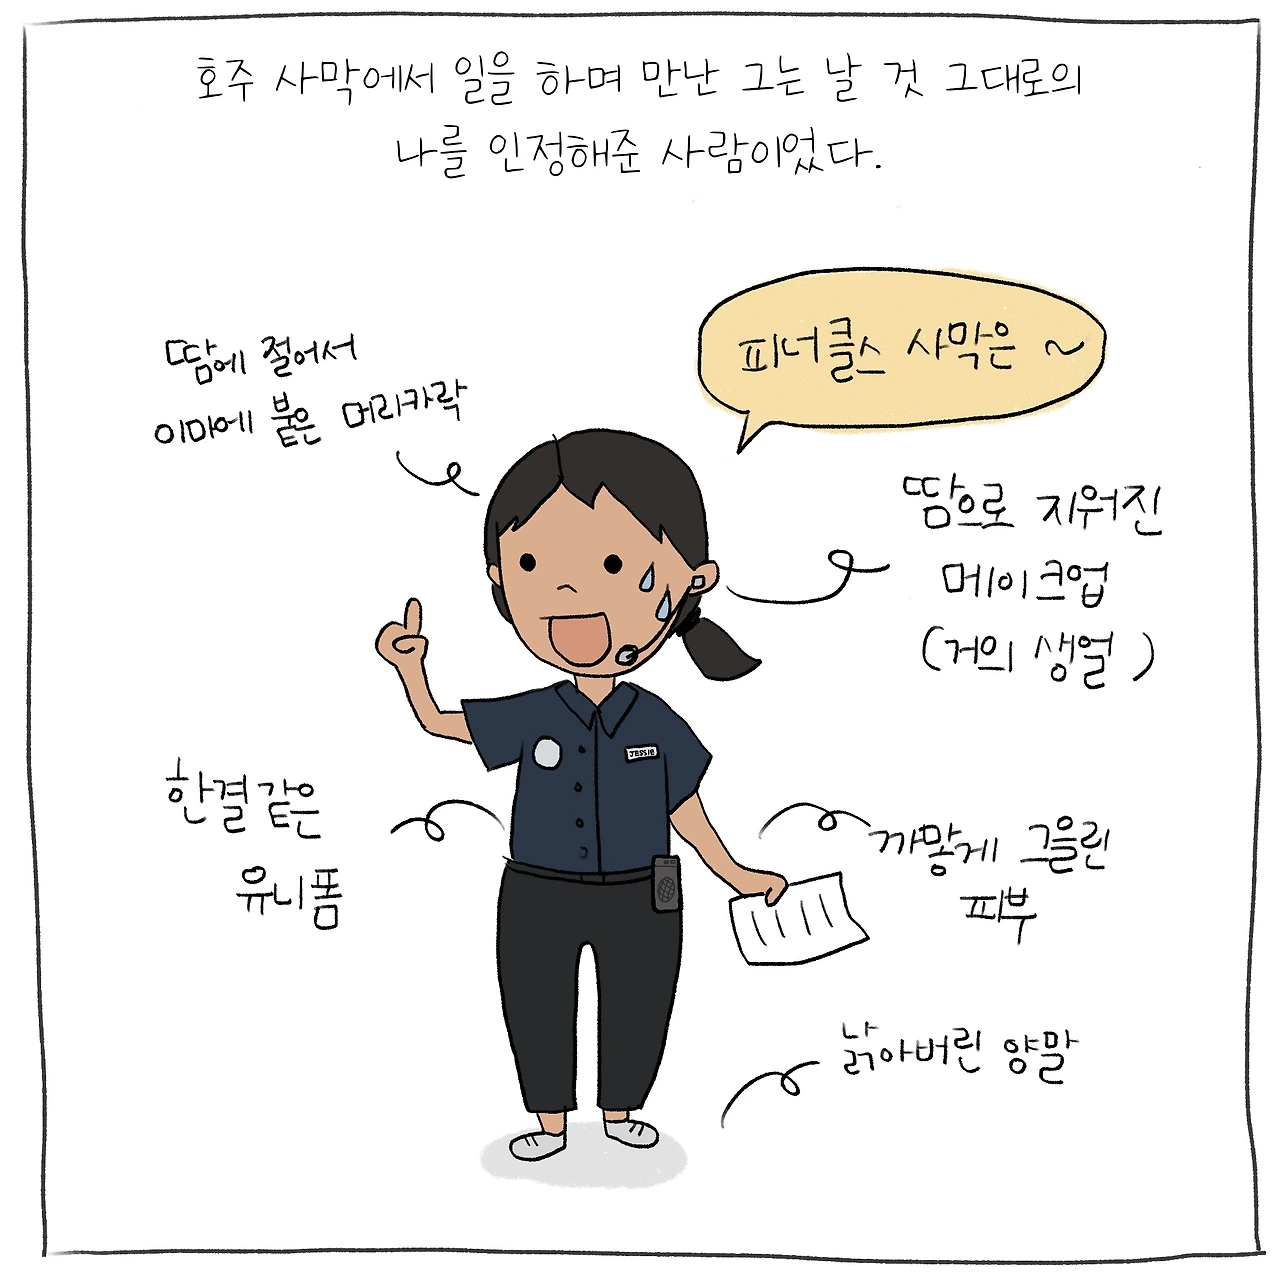 호주 사막에서 일을 하며 만난 그는 날 것 그대로의
나를 인정해준 사람이었다.
피너클스 사막은 ~
땀에 절어서
이마에 붙은 머리카락
땀으로 지워진
메이크업
(거의 생얼)
JESSIE
한결같은
유니폼
까맣게 그을린
피부
낡아버린 양말